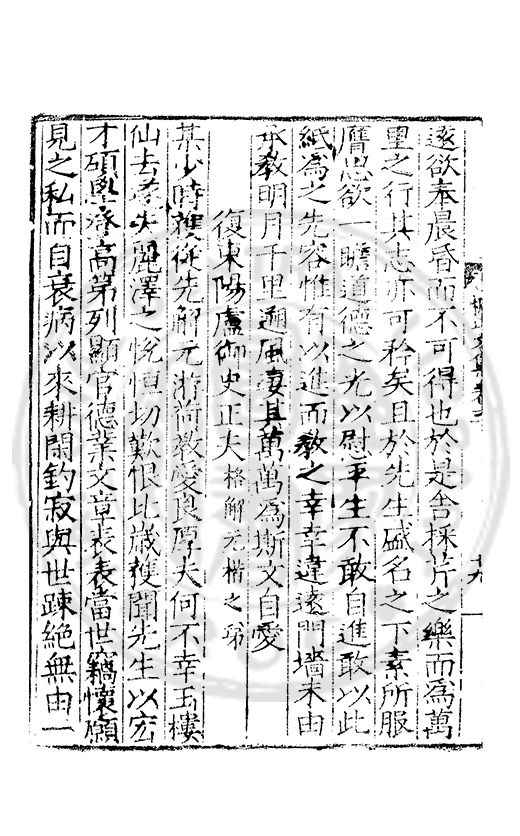 遂欲奉晨昏而不可得也於是舍採芹之樂而為萬
里之行其志亦可矜矣且於先生盛名之下素所服
膺思欲一瞻道德之光以慰平生不敢自進敢以此
紙為之先容惟有以進而教之幸幸違遠門墻未由
承教明月千里遡風凄其萬萬為斯文自愛
復東陽盧御史正夫格解元楷之弟
某少時獲從先解元游荷教愛良厚夫何不幸玉樓
仙去麗澤之悅恒切歎恨比歲獲聞先生以宏
才碩學登高第列顯官德業文章表表當世竊懷願
見之私而自衰病以來耕閒釣寂與世踈絕無由一